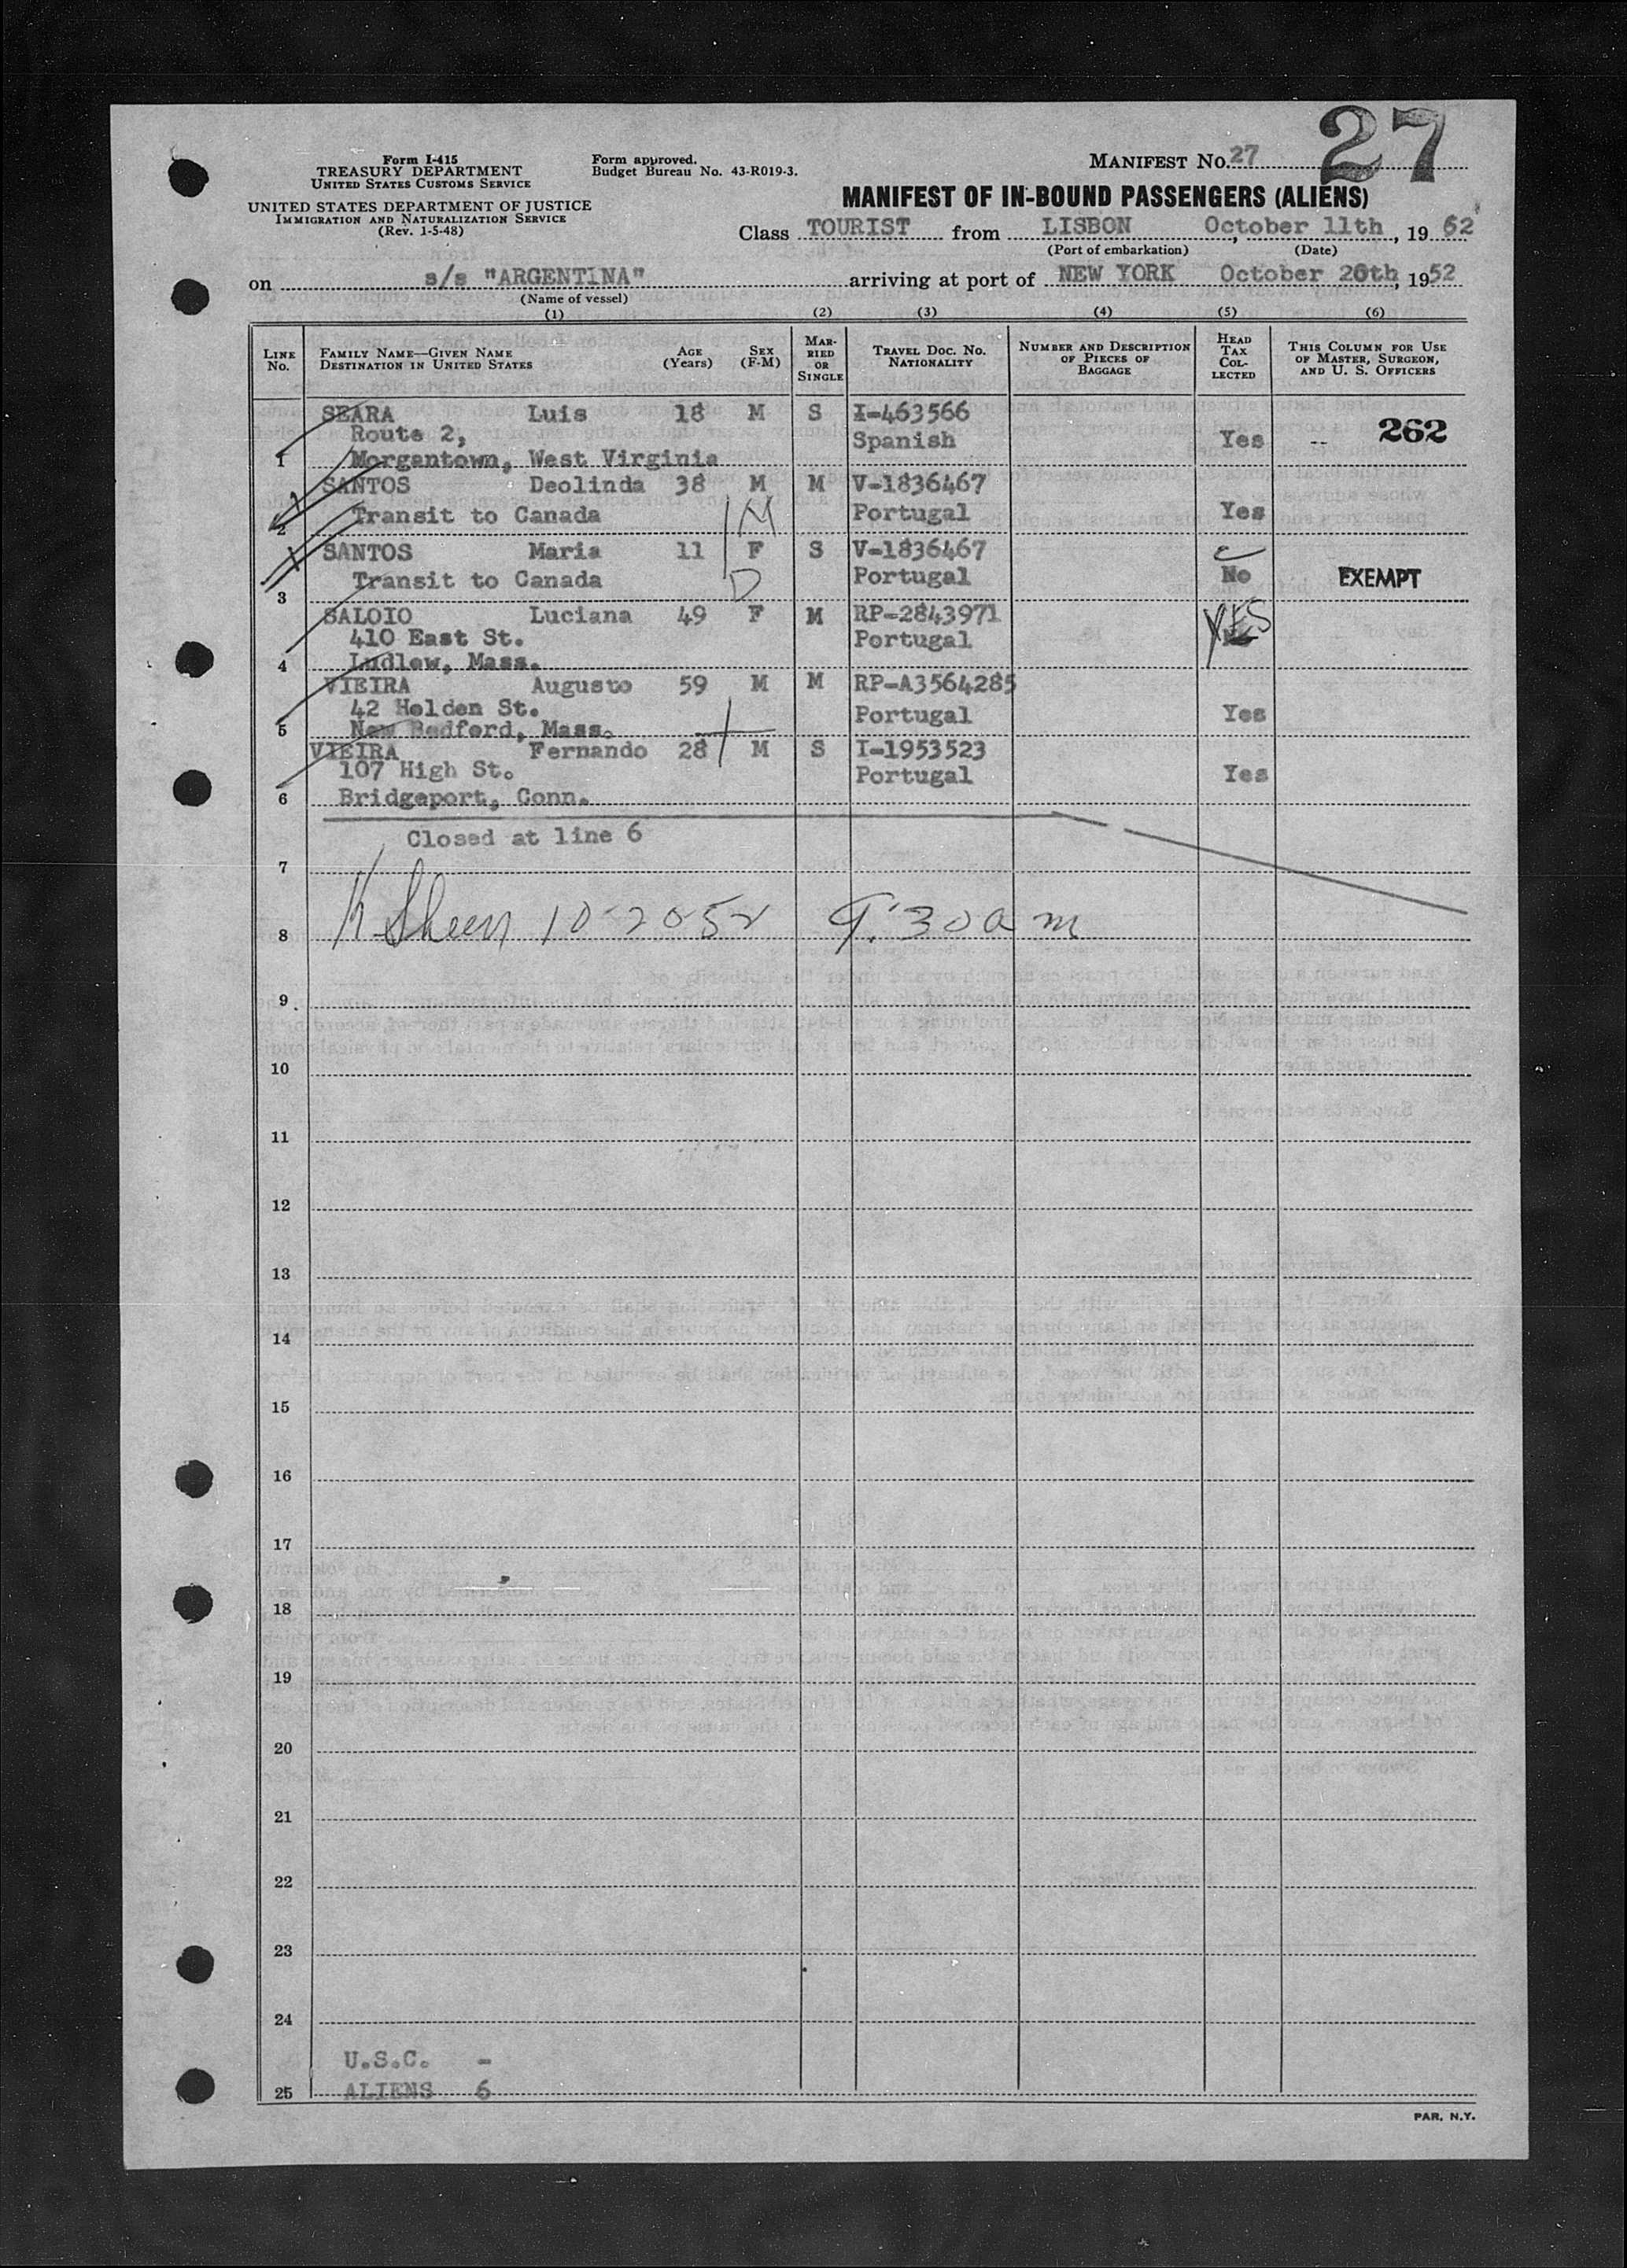 27
Form I-415
TREASURY DEPARTMENT
UNITED STATES CUSTOMS SERVICE
UNITED STATES DEPARTMENT OF JUSTICE
IMMIGRATION AND NATURALIZATION SERVICE
(Rev. 1-5-48)
Form approved.
Budget Bureau No. 43-R019-3.
MANIFEST NO. 27
MANIFEST OF IN-BOUND PASSENGERS (ALIENS)
Class TOURIST from LISBON, October 11th, 19 52
(Port of embarkation) (Date)
on s/s "ARGENTINA" arriving at port of NEW YORK October 20th, 1952
(Name of vessel)
(1) (2) (3) (4) (5) (6)
LINE No. FAMILY NAME—GIVEN NAME DESTINATION IN UNITED STATES AGE (Years) SEX (F-M) MARRIED OR SINGLE TRAVEL DOC. NO. NATIONALITY NUMBER AND DESCRIPTION OF PIECES OF BAGGAGE HEAD TAX COLLECTED THIS COLUMN FOR USE OF MASTER, SURGEON, AND U. S. OFFICERS
SEARA Luis 18 M S I-463566
Route 2, Spanish Yes -- 262
1 Morgantown, West Virginia
SANTOS Deolinda 38 M M V-1836467
2 Transit to Canada M Portugal Yes
SANTOS Maria 11 F S V-1836467
Transit to Canada D Portugal No EXEMPT
3
SALOIO Luciana 49 F M RP-2843971
410 East St. Portugal YES
4 Ludlow, Mass.
VIEIRA Augusto 59 M M RP-A3564285
42 Holden St. Portugal Yes
5 New Bedford, Mass.
VIEIRA Fernando 28 M S I-1953523
107 High St. Portugal Yes
6 Bridgeport, Conn.
Closed at line 6
7
8 10-20-52 9:30 a m
9
10
11
12
13
14
15
16
17
18
19
20
21
22
23
24
U.S.C. -
25 ALIENS 6
PAR, N.Y.